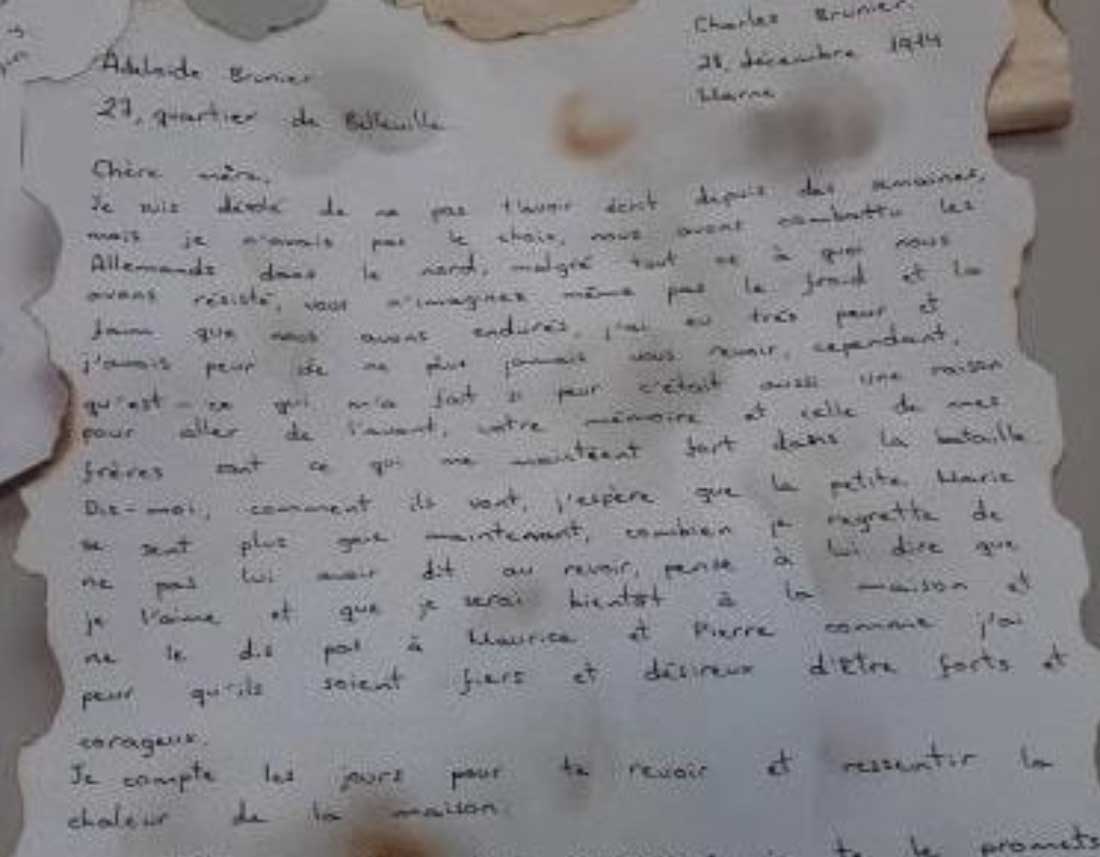 Charles Brunier
28, décembre 1914
Marne
Adelaide Brunier
27, quartier de Belleville
Chère mère,
Je suis désolé de ne pas t'avoir écrit depuis des semaines,
mais je n'avais pas le choix, nous avons combattu les
Allemands dans le nord, malgré tout ce à quoi nous
avons résisté, vous n'imaginez même pas le froid et la
faim que nous avons endurés, j'ai eu très peur et
j'avais peur de ne plus jamais vous revoir, cependant,
qu'est-ce qui m'a fait si peur c'était aussi une raison
pour aller de l'avant, votre mémoire et celle de mes
frères sont ce qui me maintient fort dans la bataille
Dis-moi, comment ils vont, j'espère que la petite Marie
se sent plus gaie maintenant, combien je regrette de
ne pas lui avoir dit au revoir, pense à lui dire que
je l'aime et que je serai bientôt à la maison et
ne le dis pas à Maurice et Pierre comme j'ai
peur qu'ils soient fiers et désireux d'être forts et
corageux.
Je compte les jours pour te revoir et ressentir la
chaleur de la maison.
te le promets